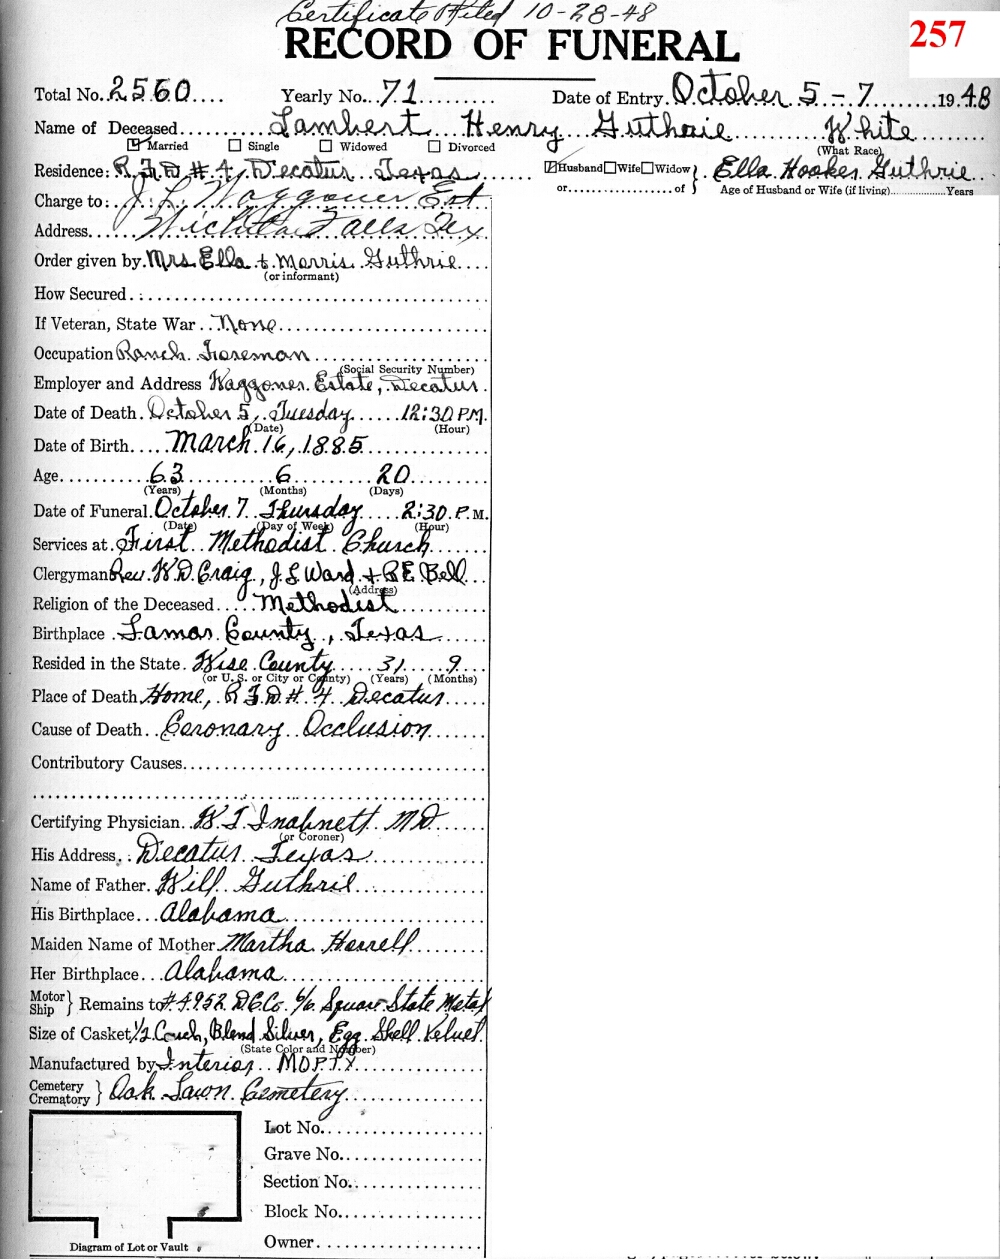 Certificate Filed 10-28-48
257
RECORD OF FUNERAL
Total No. 2560 Yearly No. 71 Date of Entry October 5-7 1948
Name of Deceased Lambert Henry Guthrie White
Married Single Widowed Divorced (What Race)
Residence: R.F.D #4, Decatur Texas Husband Wife Widow Ella Hooker Guthrie
or of Age of Husband or Wife (if living) Years
Charge to: J. L. Waggoner Est
Address Wichita Falls Tex
Order given by Mrs Ella & Morris Guthrie
(or informant)
How Secured
If Veteran, State War None
Occupation Ranch Foreman
(Social Security Number)
Employer and Address Waggoner Estate, Decatur
Date of Death October 5, Tuesday 12:30 P.M.
(Date) (Hour)
Date of Birth March 16, 1885
Age 63 6 20
(Years) (Months) (Days)
Date of Funeral October 7 Thursday 2:30 P.M.
(Date) (Day of Week) (Hour)
Services at First Methodist Church
Clergyman Rev. W.D. Craig, J L Ward & R E Bell
(Address)
Religion of the Deceased Methodist
Birthplace Lamar County, Texas
Resided in the State Wise County 31 9
(or U. S. or City or County) (Years) (Months)
Place of Death Home, R F.D # 4 Decatur
Cause of Death Coronary Occlusion
Contributory Causes
Certifying Physician W T Inabnett MD
(or Coroner)
His Address Decatur Texas
Name of Father Will Guthrie
His Birthplace Alabama
Maiden Name of Mother Martha Herrell
Her Birthplace Alabama
Motor Ship Remains to #4952 D.C.Co. 6/6 Square State Metal
Size of Casket 1/2 Couch, Blend Silver, Egg Shell Velvet
(State Color and Number)
Manufactured by Interior
Cemetery Crematory Oak Lawn Cemetery
Lot No.
Grave No.
Section No.
Block No.
Owner
Diagram of Lot or Vault